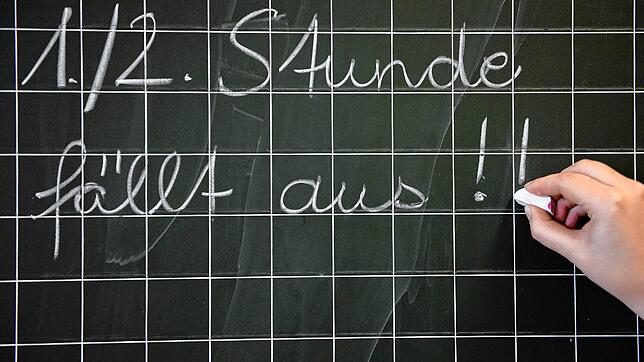 1./2. Stunde
fällt aus!!